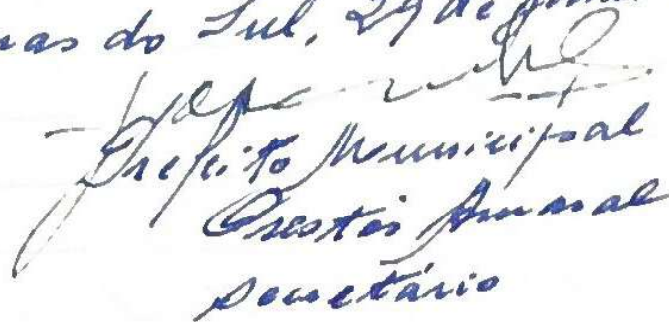 as do Sul, 29 de
Prefeito Municipal
Orestes Amaral
secretário